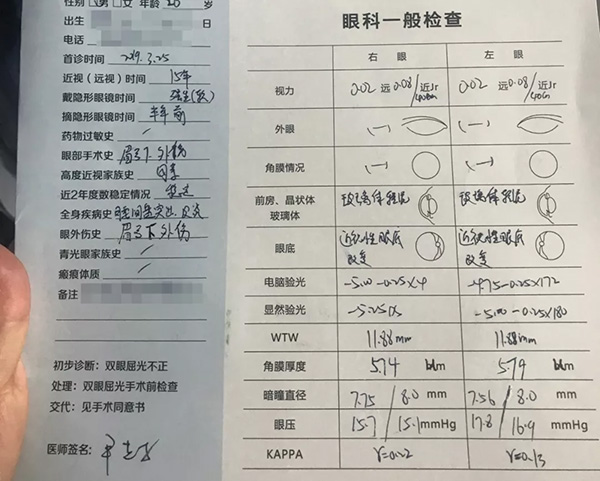 性别 男 女 年龄 20 岁
出生
电话
首诊时间 2019.3.25
近视（远视）时间 15年
戴隐形眼镜时间
摘隐形眼镜时间 半年前
药物过敏史 /
眼部手术史 眉弓下外伤
高度近视家族史
近2年度数稳定情况 稳定
全身疾病史
眼外伤史 眉弓下外伤
青光眼家族史 /
瘢痕体质 /
备注
初步诊断：双眼屈光不正
处理：双眼屈光手术前检查
交代：见手术同意书
医师签名：
眼科一般检查
右 眼 左 眼
视力 0.02 远 0.08/近Jr 0.02 远 0.08/近Jr
外眼 (一) (一)
角膜情况 (一) (一)
前房、晶状体 玻璃体 玻璃体混浊 玻璃体混浊
眼底 近视性眼底改变 近视性眼底改变
电脑验光 -5.00-0.25×4 -4.75-0.25×172
显然验光 -5.25DS -5.00-0.25×180
WTW 11.88mm 11.88mm
角膜厚度 574 um 579 um
暗瞳直径 7.75 / 8.0 mm 7.56 / 8.0 mm
眼压 15.7 / 15.1 mmHg 17.8 / 16.9 mmHg
KAPPA r=0.22 r=0.13